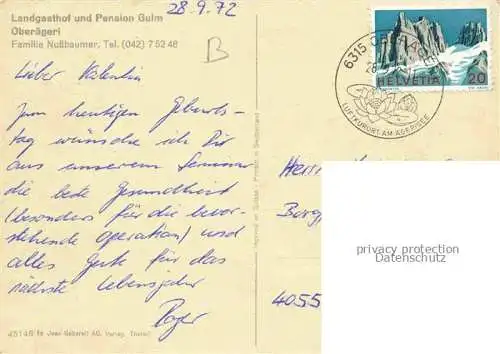 28.9.72
Landgasthof und Pension Gulm
Oberägeri
Familie Nußbaumer, Tel. (042) 7 52 48
B
Lieber Valentin
Zum heutigen Geburts-
tag wünsche ich Dir
aus unserem Seminar
die beste Gesundheit
(besonders für die bevor-
stehende Operation) und
alles Gute für das
nächste Lebensjahr
Roger
45148
Jean Gaberell AG, Verlag, Thalwil
Imprimé en Suisse - Printed in Switzerland
6315 OBERÄGERI
28.9.
LUFTKURORT AM AEGERISEE
HELVETIA 20
Herr
4055
privacy protection
Datenschutz